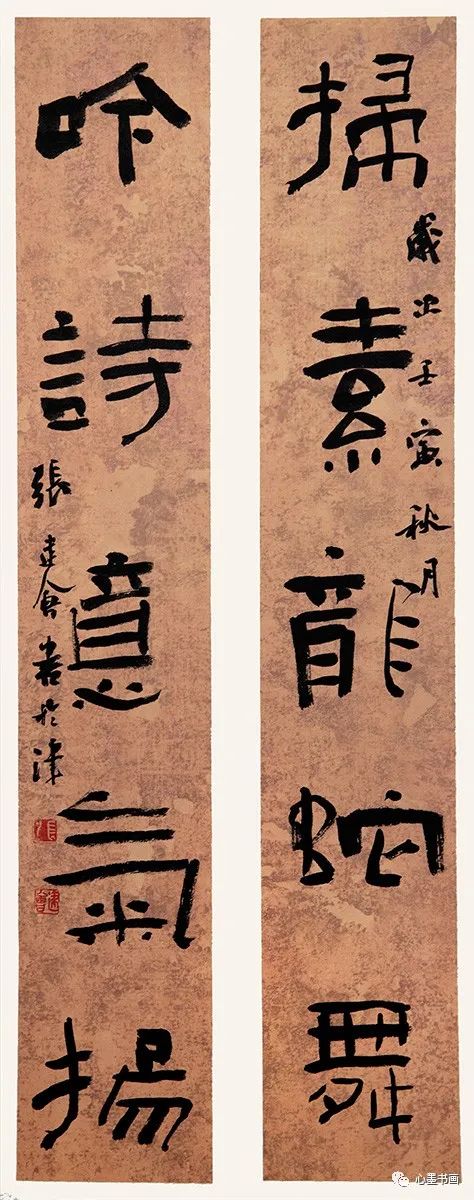 掃素龍蛇舞
歲次壬寅秋月
吟詩意氣揚
張建會書於津
建會
心墨书画